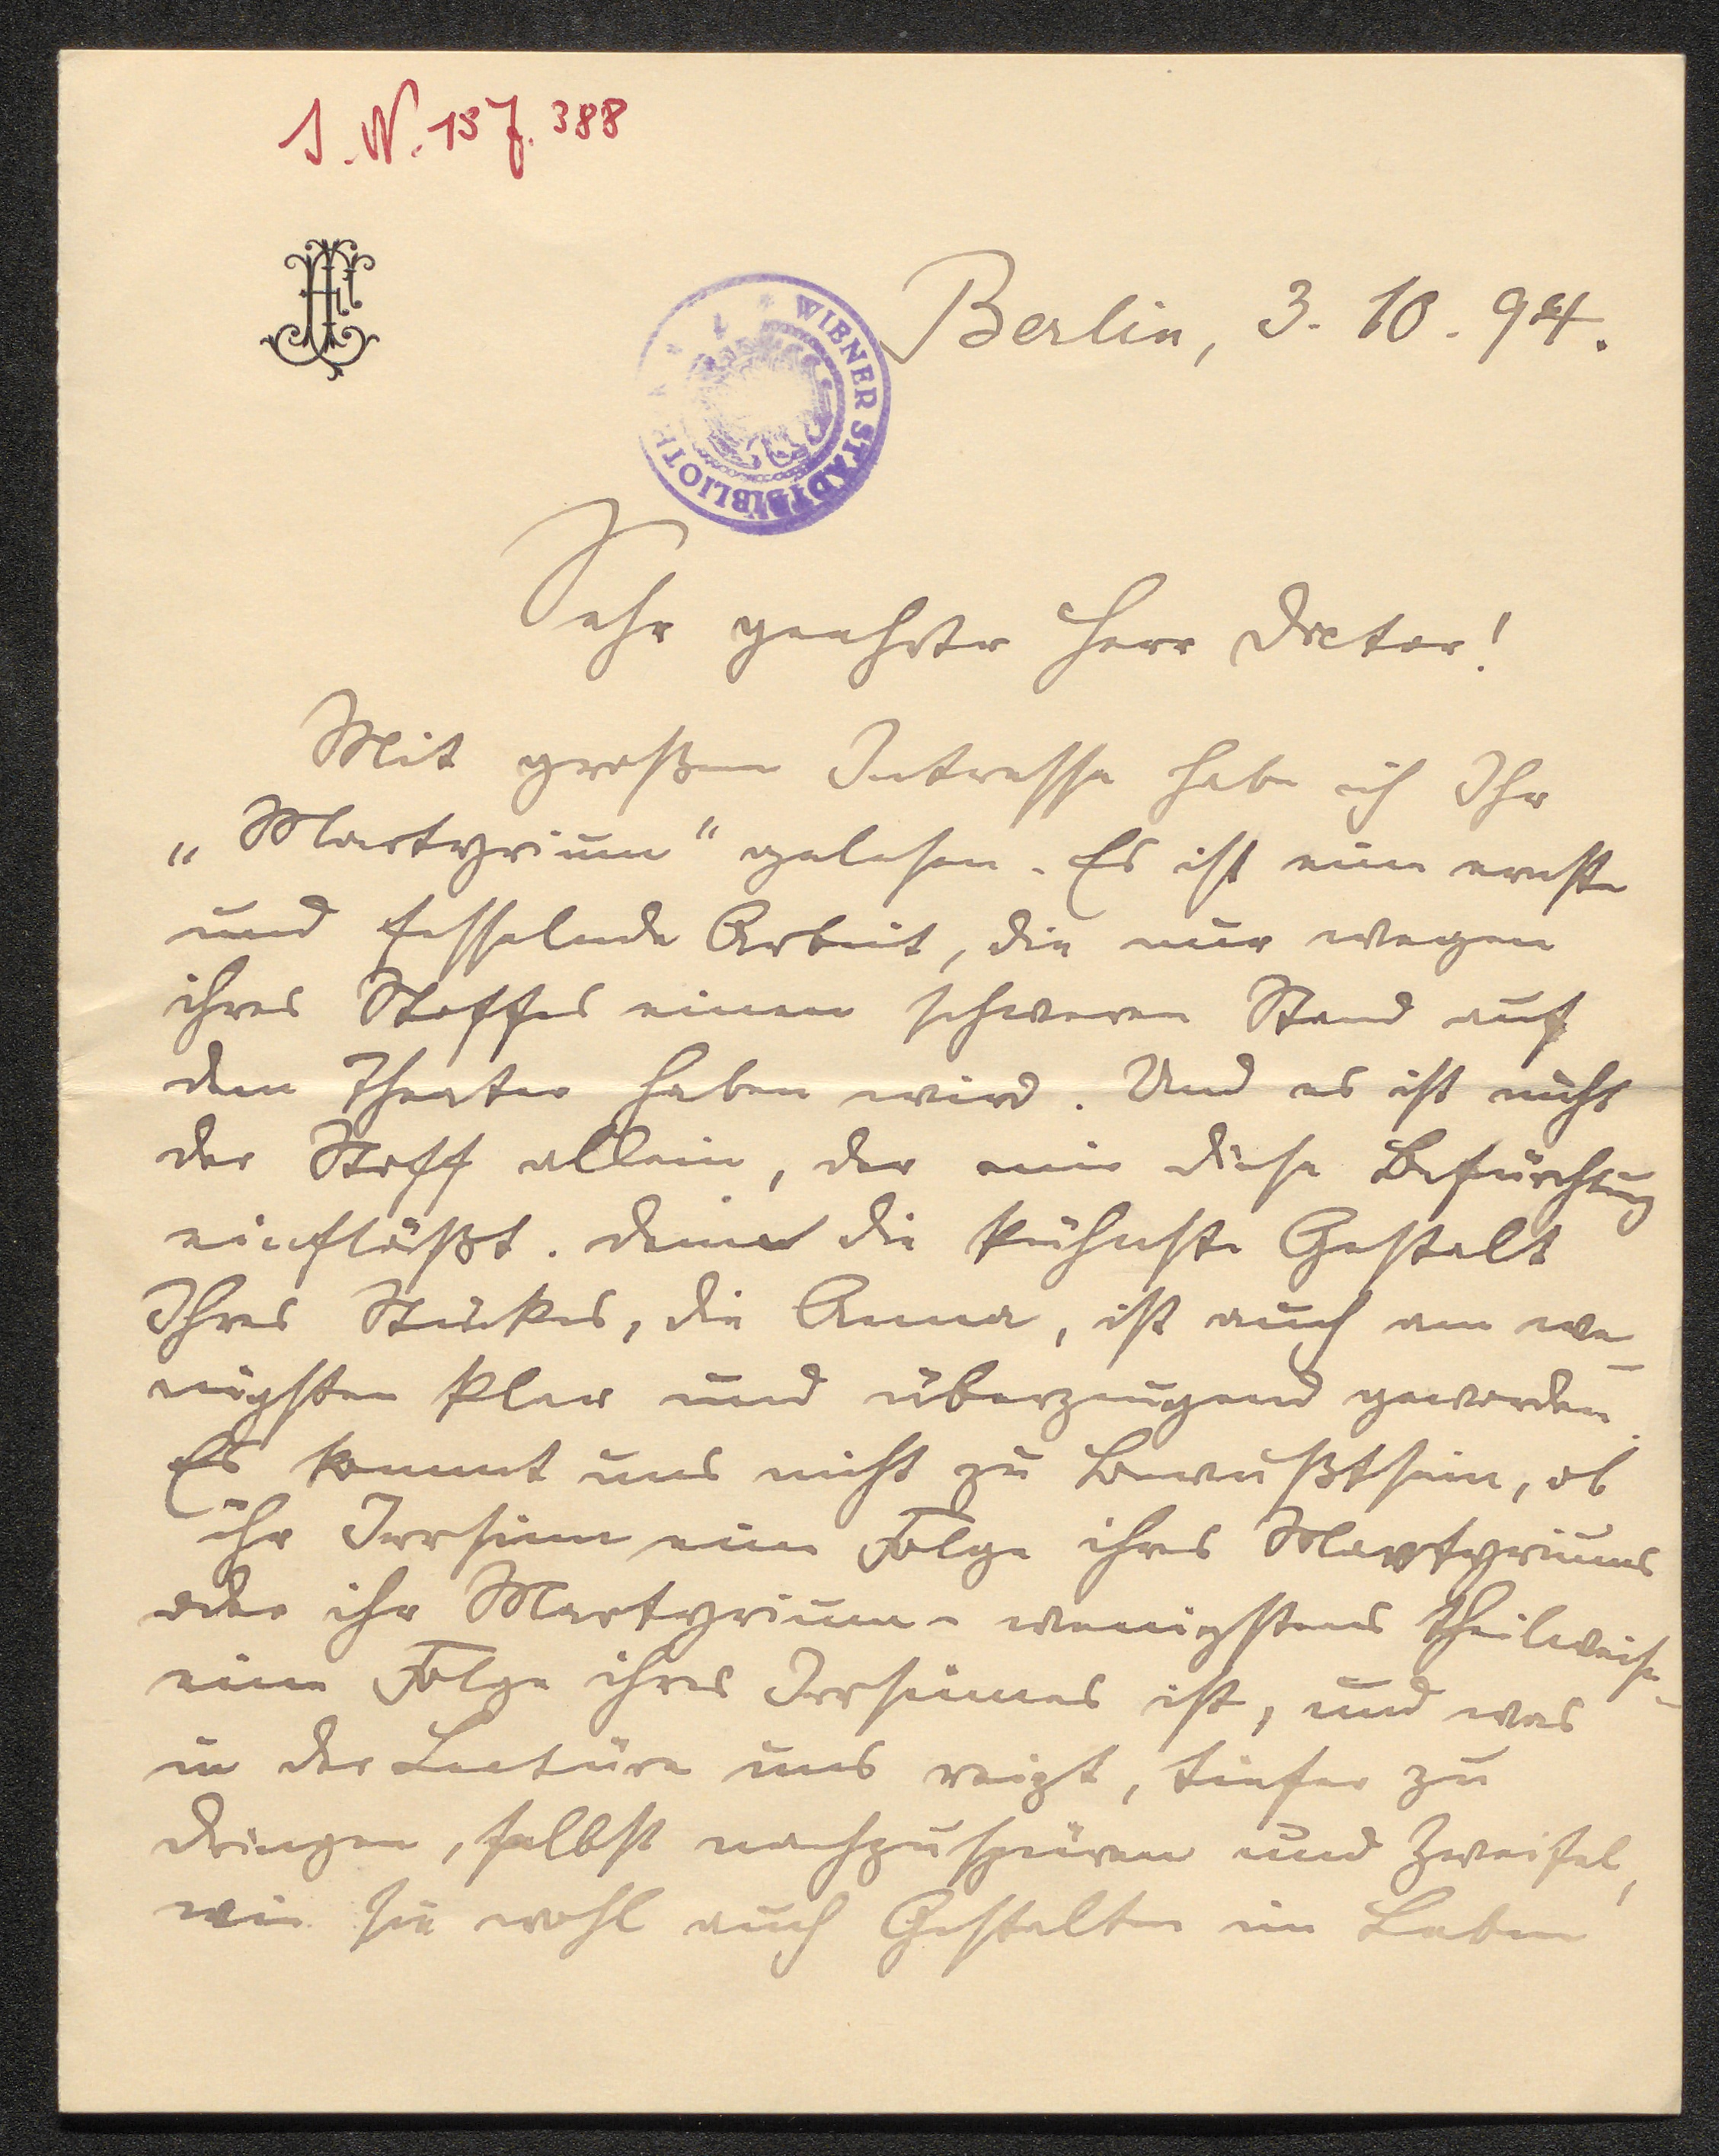 I.N. 137.388
WIENER STADTBIBLIOTHEK
Berlin, 3. 10. 94.
Sehr geehrter Herr Doctor!
Mit großem Intresse habe ich Ihr
„Martyrium“ gelesen. Es ist eine ernste
und fesselnde Arbeit, die nur wegen
ihres Stoffes einen schweren Stand auf
dem Theater haben wird. Und es ist nicht
der Stoff allein, der mir diese Befürchtung
einflößt. Denn die kühnste Gestalt
Ihres Stückes, die Anna, ist auch am we-
nigsten klar und überzeugend geworden.
Es kommt uns nicht zu Bewußtsein, ob
ihr Irrsinn eine Folge ihres Martyriums
oder ihr Martyrium - wenigstens theilweise -
eine Folge ihres Irrsinnes ist, und was
in der Lectüre uns reizt, tiefer zu
dringen, selbst nachzuspüren und Zweifel,
wie sie wohl auch Gestalten im Leben